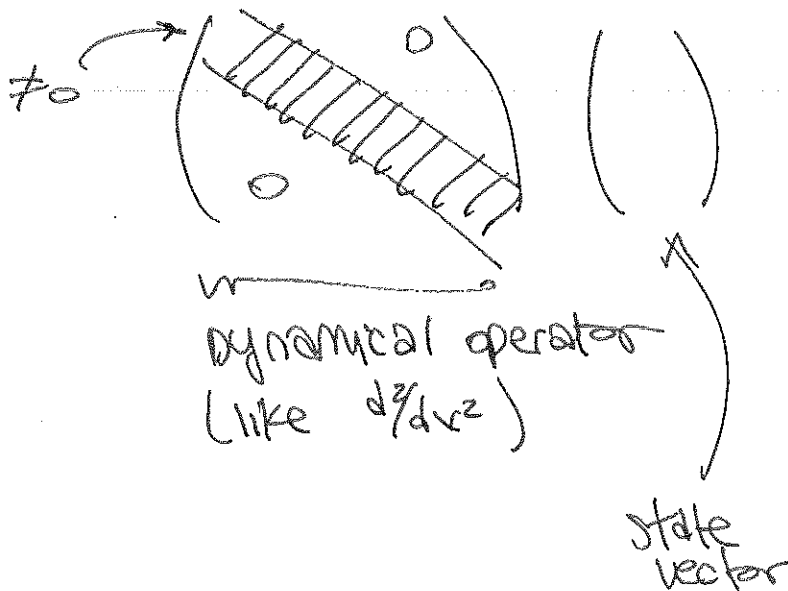 ≠0
0
0
Dynamical operator
(like d²/dr²)
state
vector